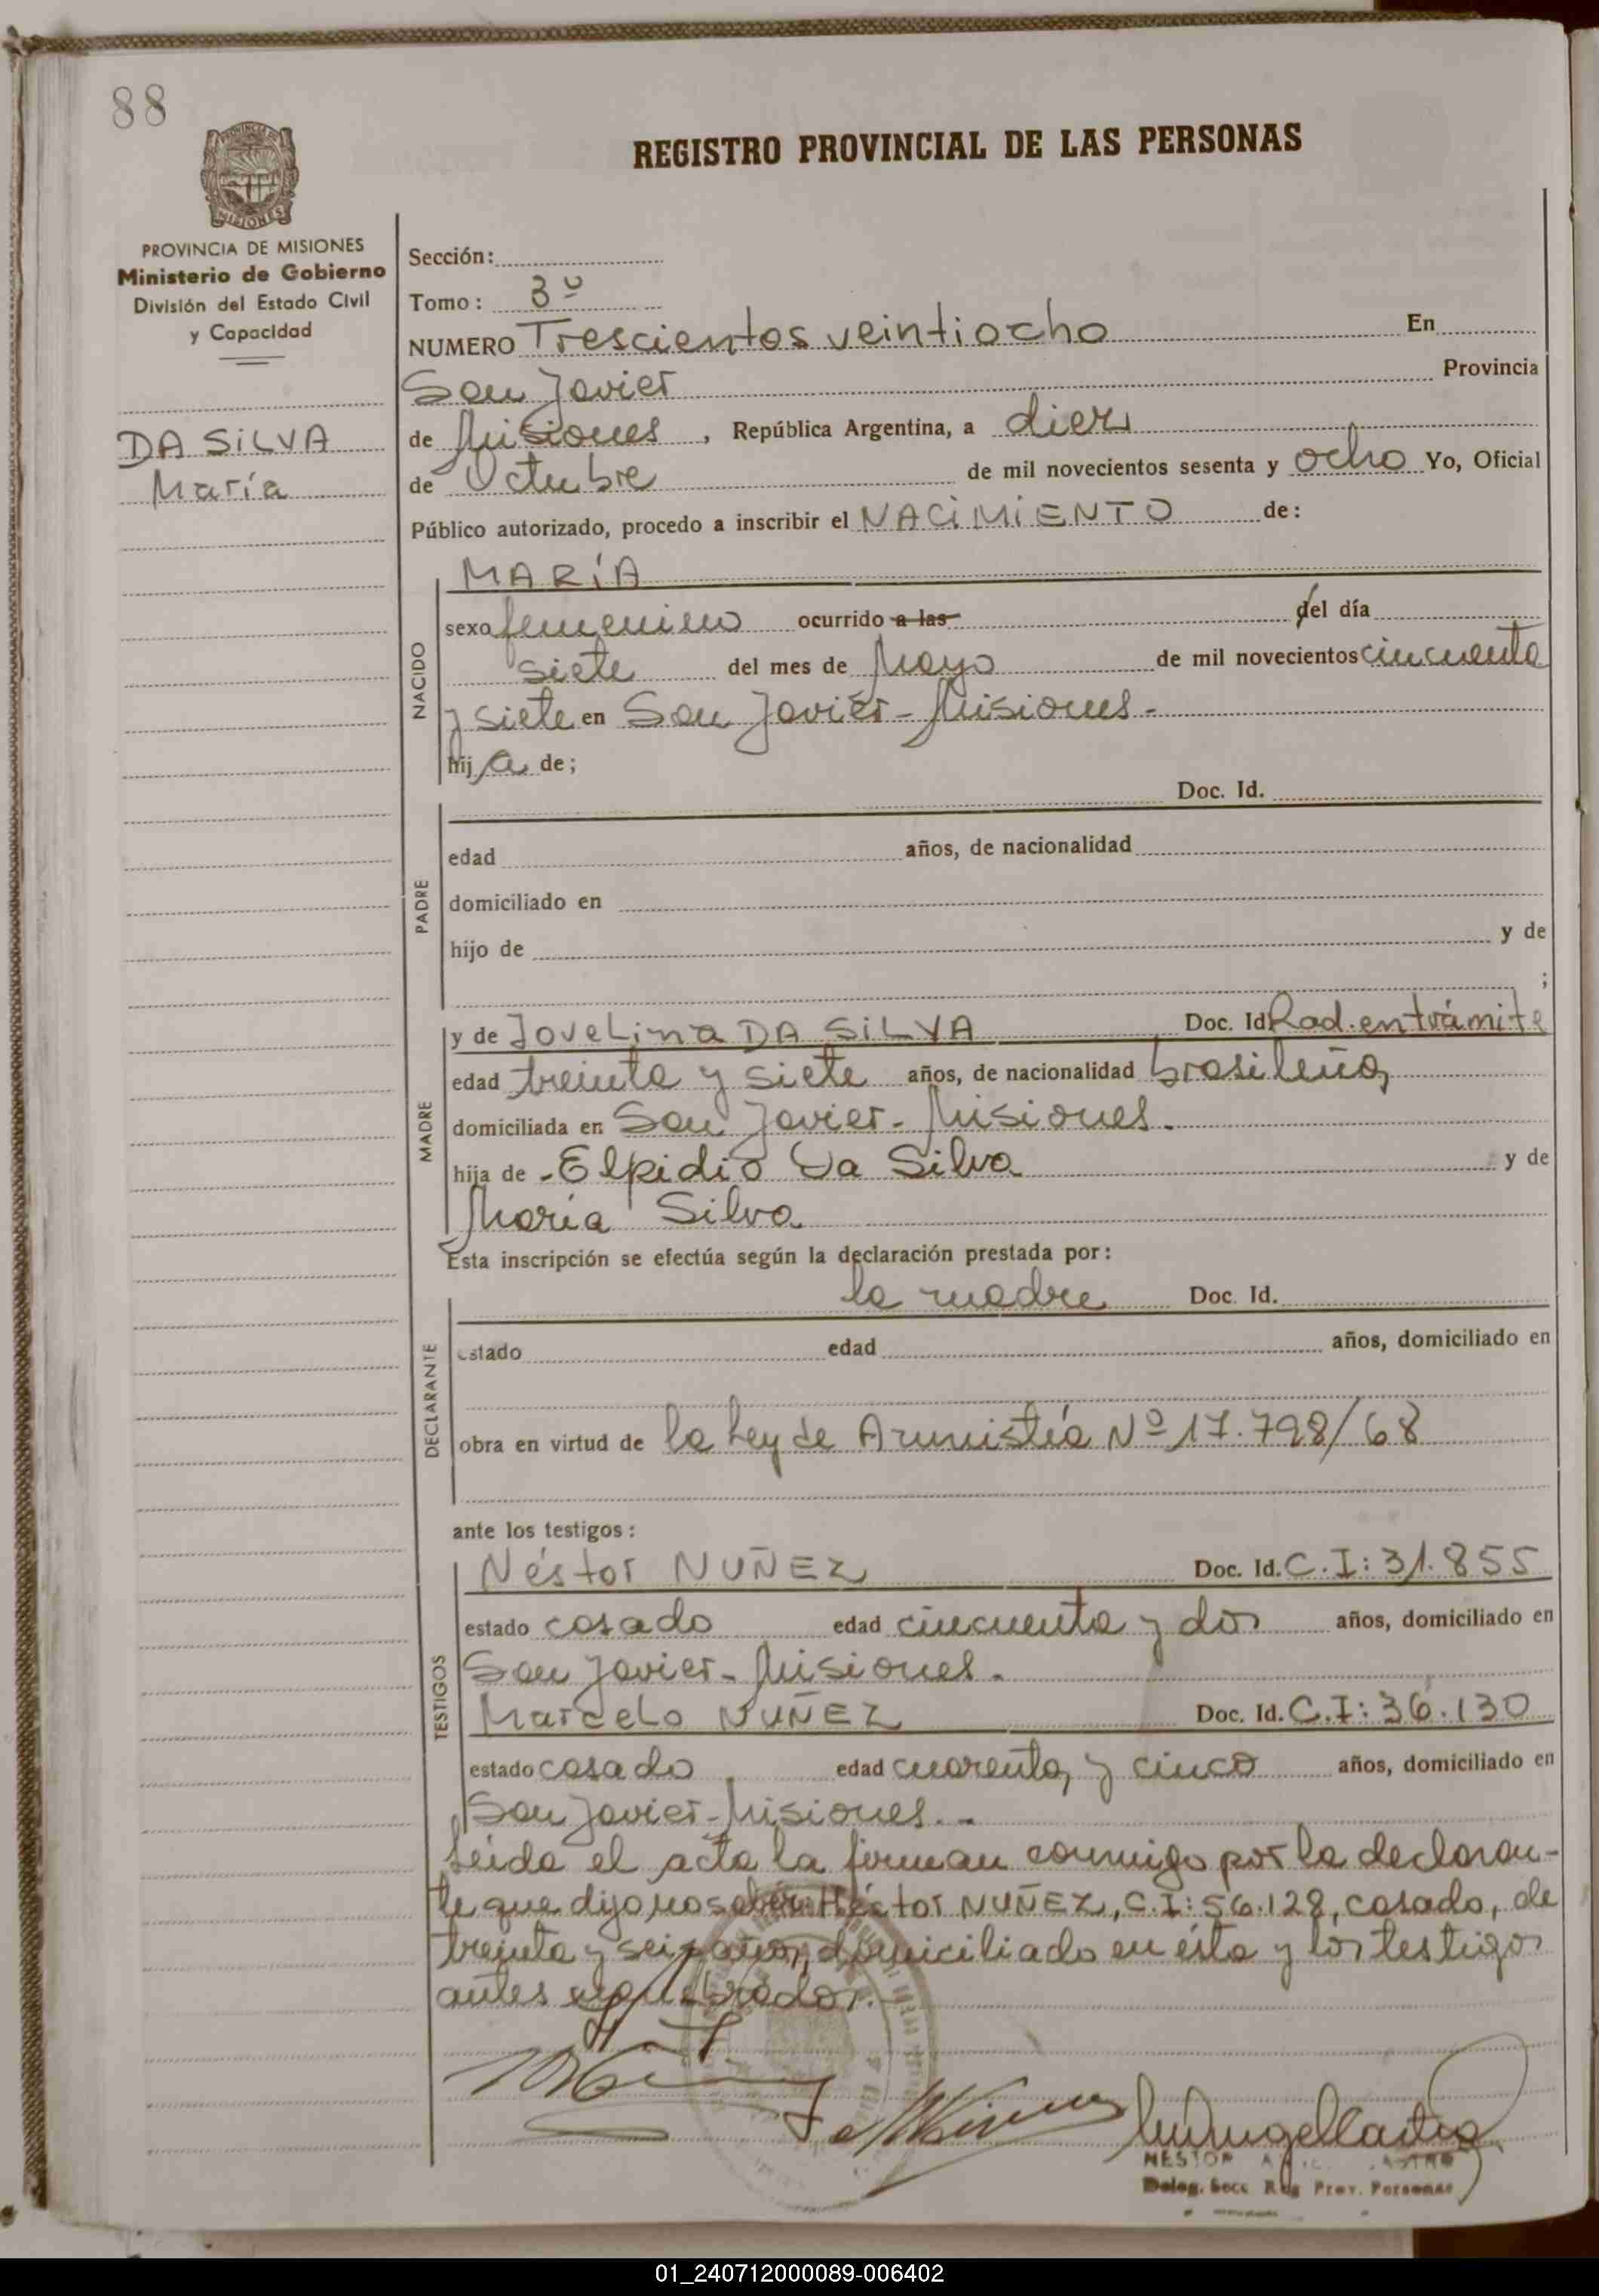 88
REGISTRO PROVINCIAL DE LAS PERSONAS
PROVINCIA DE MISIONES
Ministerio de Gobierno
División del Estado Civil
y Capacidad
DA SILVA
María
Sección:
Tomo: 3º
NUMERO Trescientos veintiocho En
San Javier Provincia
de Misiones, República Argentina, a diez
de Octubre de mil novecientos sesenta y ocho Yo, Oficial
Público autorizado, procedo a inscribir el NACIMIENTO de:
NACIDO
MARÍA
sexo femenino ocurrido a las del día
siete del mes de Mayo de mil novecientos cincuenta
y siete en San Javier - Misiones -
hija de;
PADRE
Doc. Id.
edad años, de nacionalidad
domiciliado en
hijo de y de
;
MADRE
y de Jovelina DA SILVA Doc. Id Rad. en trámite
edad treinta y siete años, de nacionalidad brasileña,
domiciliada en San Javier - Misiones.
hija de - Elpidio Da Silva y de
María Silva
Esta inscripción se efectúa según la declaración prestada por:
DECLARANTE
la madre Doc. Id.
estado edad años, domiciliado en
obra en virtud de la Ley de Amnistía Nº 17.798/68
ante los testigos:
TESTIGOS
Néstor NUÑEZ Doc. Id. C.I: 31.855
estado casado edad cincuenta y dos años, domiciliado en
San Javier - Misiones.
Marcelo NUÑEZ Doc. Id. C.I: 36.130
estado casado edad cuarenta y cinco años, domiciliado en
San Javier - Misiones. -
Leída el acta la firman conmigo por la declaran-
te que dijo no saber: Héctor NUÑEZ, C.I: 56.128, casado, de
treinta y seis años, domiciliado en ésta y los testigos
antes nombrados. -
NESTOR
Deleg. Secc Reg Prov. Personas
01_240712000089-006402